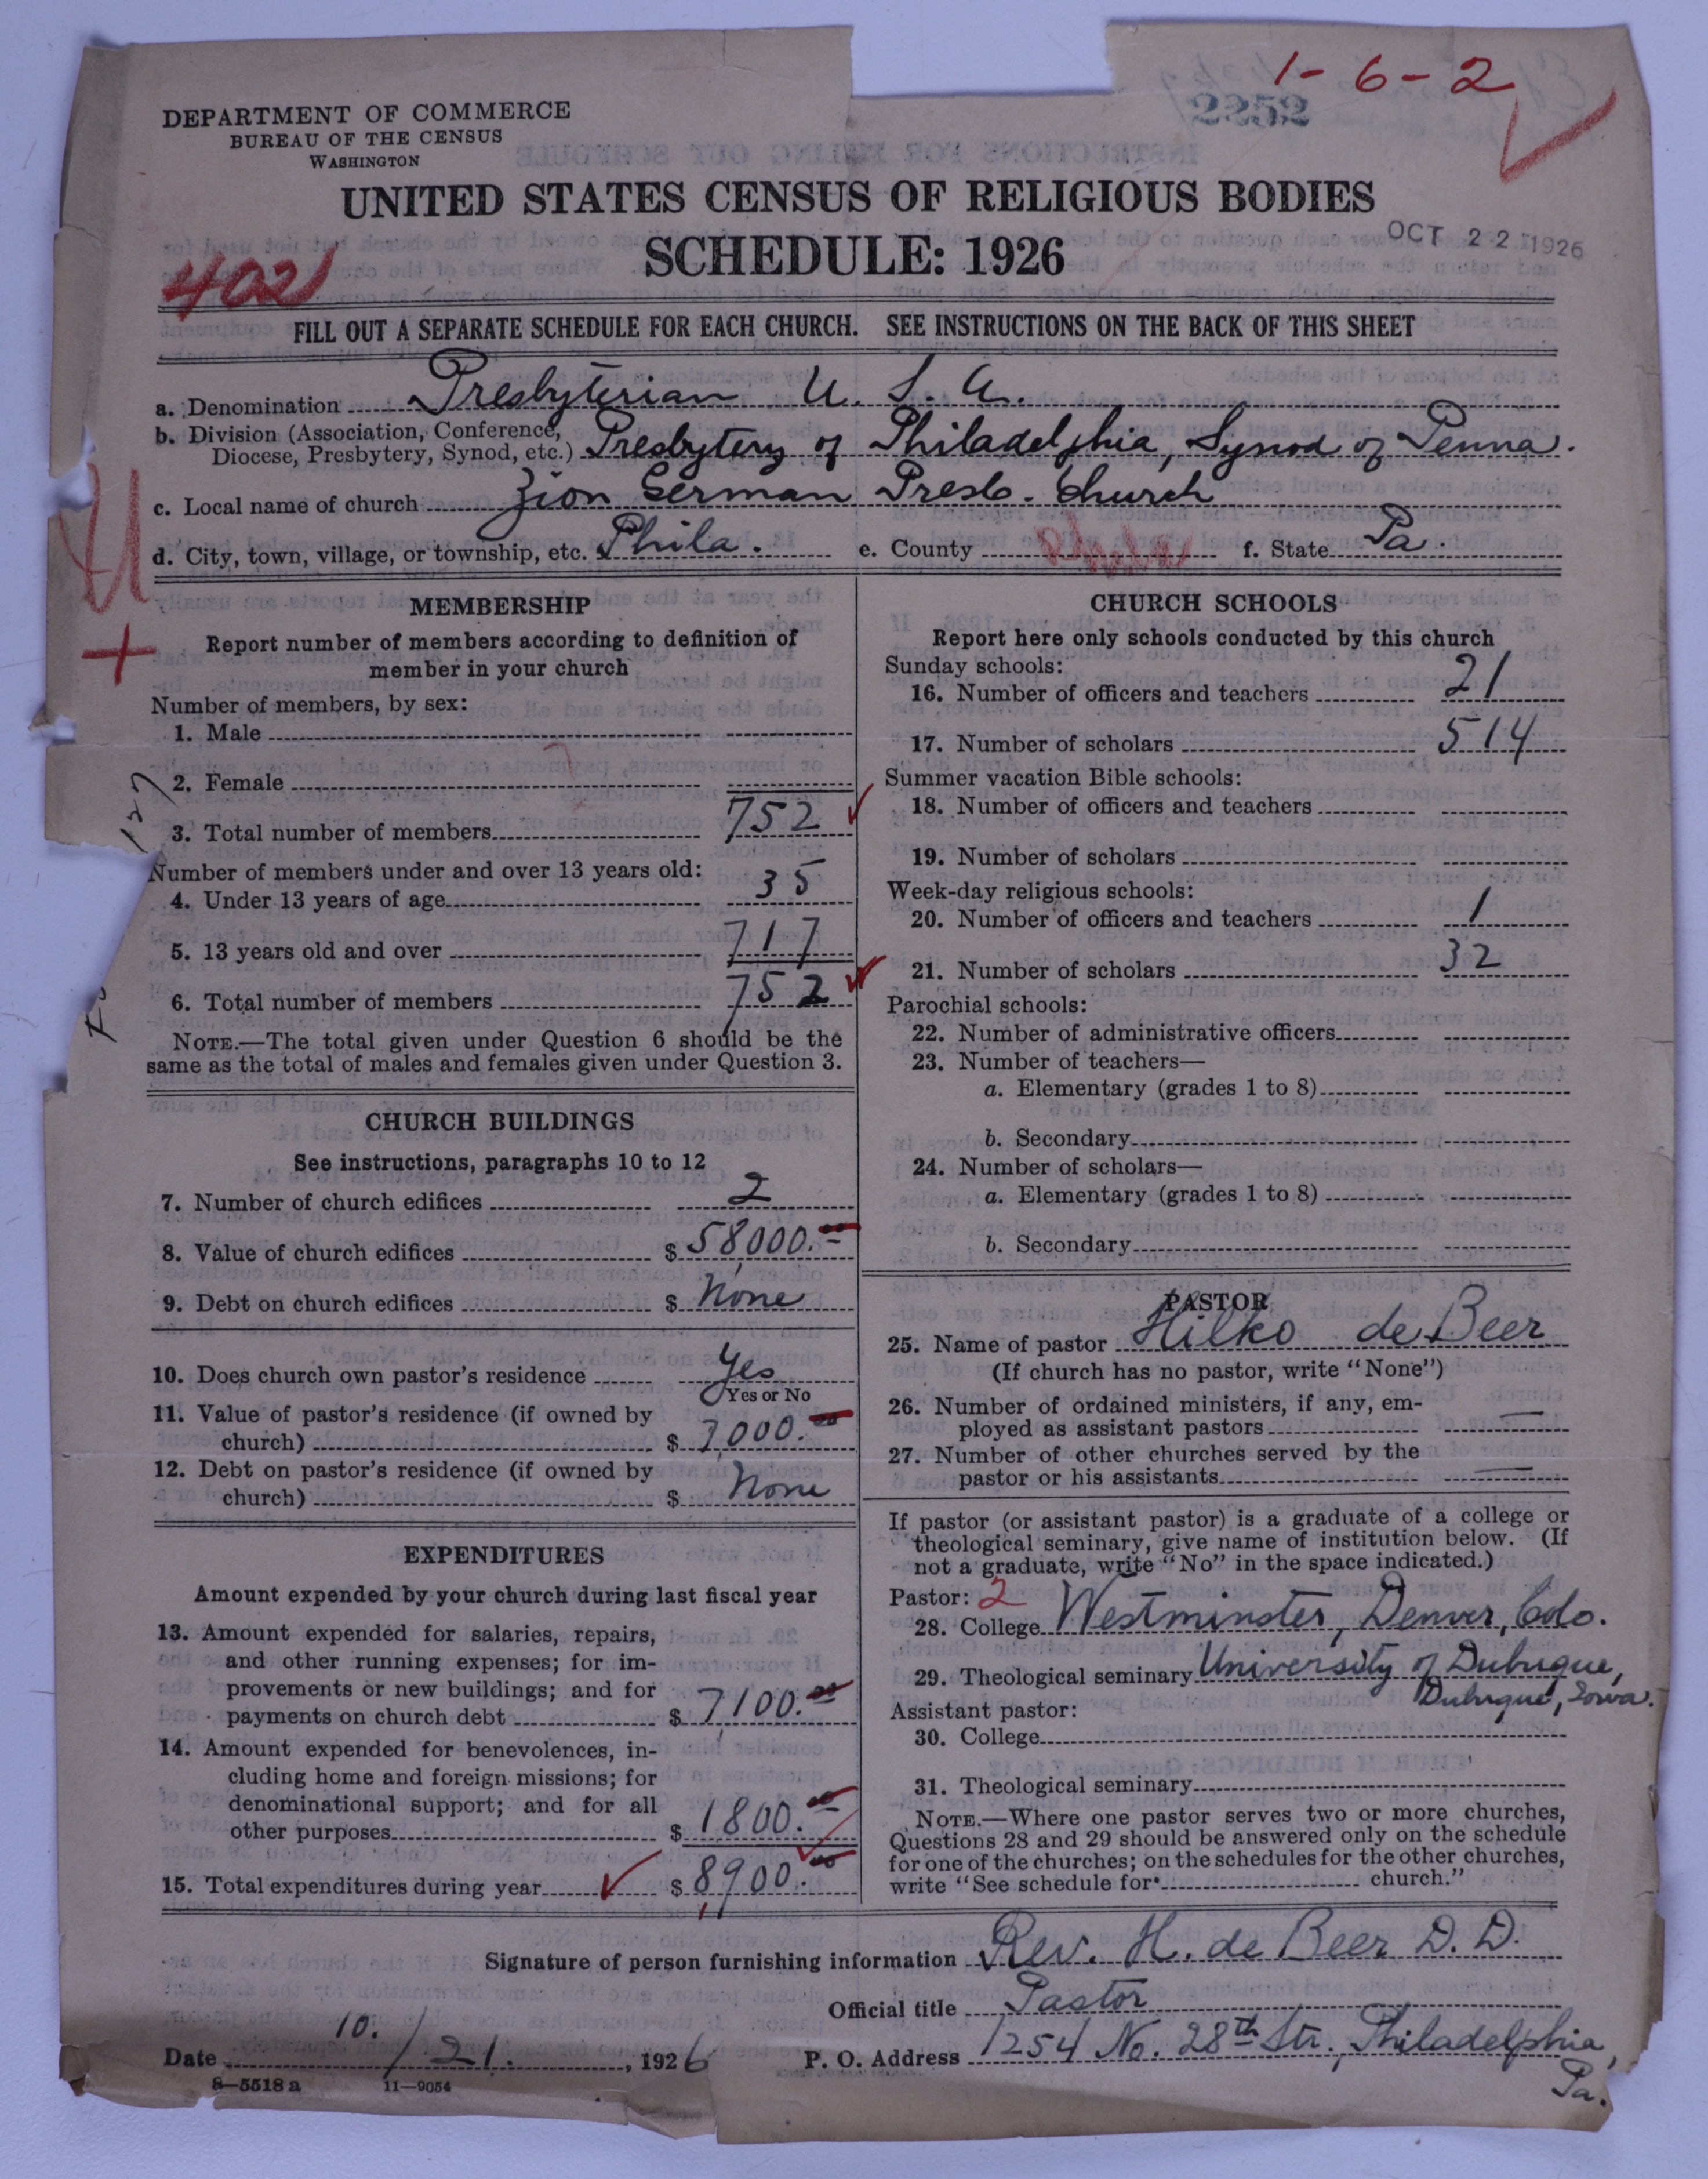 1-6-2
2252
DEPARTMENT OF COMMERCE
BUREAU OF THE CENSUS
WASHINGTON
UNITED STATES CENSUS OF RELIGIOUS BODIES
SCHEDULE: 1926
OCT 22 1926
402
FILL OUT A SEPARATE SCHEDULE FOR EACH CHURCH. SEE INSTRUCTIONS ON THE BACK OF THIS SHEET
a. Denomination Presbyterian U. S. A.
b. Division (Association, Conference,
Diocese, Presbytery, Synod, etc.) Presbytery of Philadelphia, Synod of Penna.
c. Local name of church Zion German Presb. Church
d. City, town, village, or township, etc. Phila. e. County Phila f. State Pa.
U
+
MEMBERSHIP
Report number of members according to definition of
member in your church
Number of members, by sex:
1. Male
2. Female
3. Total number of members 752
Number of members under and over 13 years old:
4. Under 13 years of age 35
5. 13 years old and over 717
6. Total number of members 752
NOTE.—The total given under Question 6 should be the
same as the total of males and females given under Question 3.
CHURCH BUILDINGS
See instructions, paragraphs 10 to 12
7. Number of church edifices 2
8. Value of church edifices $ 58,000.00
9. Debt on church edifices $ None
10. Does church own pastor's residence Yes
Yes or No
11. Value of pastor's residence (if owned by
church) $ 7,000.00
12. Debt on pastor's residence (if owned by
church) $ None
EXPENDITURES
Amount expended by your church during last fiscal year
13. Amount expended for salaries, repairs,
and other running expenses; for im-
provements or new buildings; and for
payments on church debt $ 7,100.00
14. Amount expended for benevolences, in-
cluding home and foreign missions; for
denominational support; and for all
other purposes $ 1800.00
15. Total expenditures during year $ 8,900.00
CHURCH SCHOOLS
Report here only schools conducted by this church
Sunday schools:
16. Number of officers and teachers 21
17. Number of scholars 514
Summer vacation Bible schools:
18. Number of officers and teachers
19. Number of scholars
Week-day religious schools:
20. Number of officers and teachers 1
21. Number of scholars 32
Parochial schools:
22. Number of administrative officers
23. Number of teachers—
a. Elementary (grades 1 to 8)
b. Secondary
24. Number of scholars—
a. Elementary (grades 1 to 8)
b. Secondary
PASTOR
25. Name of pastor Hilko de Beer
(If church has no pastor, write "None")
26. Number of ordained ministers, if any, em-
ployed as assistant pastors —
27. Number of other churches served by the
pastor or his assistants —
If pastor (or assistant pastor) is a graduate of a college or
theological seminary, give name of institution below. (If
not a graduate, write "No" in the space indicated.)
Pastor: 2
28. College Westminster, Denver, Colo.
29. Theological seminary University of Dubuque,
Dubuque, Iowa.
Assistant pastor:
30. College
31. Theological seminary
NOTE.—Where one pastor serves two or more churches,
Questions 28 and 29 should be answered only on the schedule
for one of the churches; on the schedules for the other churches,
write "See schedule for church."
Signature of person furnishing information Rev. H. de Beer D. D.
Official title Pastor
Date 10./21., 1926 P. O. Address 1254 No. 28th Str., Philadelphia,
Pa.
8—5518 a 11—9054